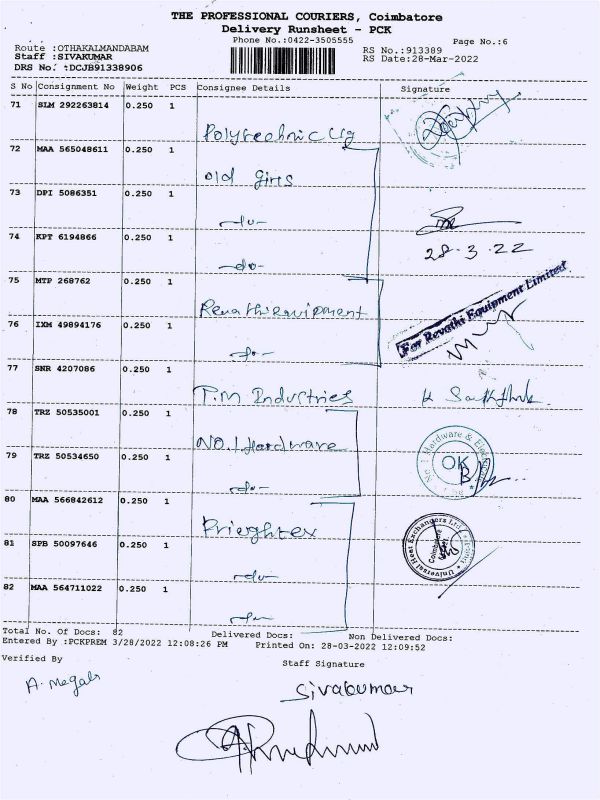 THE PROFESSIONAL COURIERS, Coimbatore
Delivery Runsheet - PCK
Phone No.:0422-3505555
Page No.:6
Route :OTHAKALMANDABAM
RS No.:913389
Staff :SIVAKUMAR
RS Date:28-Mar-2022
DRS No. :DCJB91338906
S No Consignment No Weight PCS Consignee Details Signature
71 SLM 292263814 0.250 1
Polytechnic Clg
72 MAA 565048611 0.250 1
old girls
73 DPI 5086351 0.250 1
-do-
74 KPT 6194866 0.250 1
28.3.22
-do-
75 MTP 268762 0.250 1
Revathi equipment
For Revathi Equipment Limited
76 IXM 49894176 0.250 1
-do-
77 SNR 4207086 0.250 1
T.M Industries
78 TRZ 50535001 0.250 1
NO.1 Hardware
No. 1 Hardware &
OK
79 TRZ 50534650 0.250 1
-do-
80 MAA 566842612 0.250 1
Universal Heat Exchangers
Coimbatore
81 SPB 50097646 0.250 1
-do-
82 MAA 564711022 0.250 1
-do-
Total No. Of Docs: 82 Delivered Docs: Non Delivered Docs:
Entered By :PCKPREM 3/28/2022 12:08:26 PM Printed On: 28-03-2022 12:09:52
Verified By
Staff Signature
Sivakumar